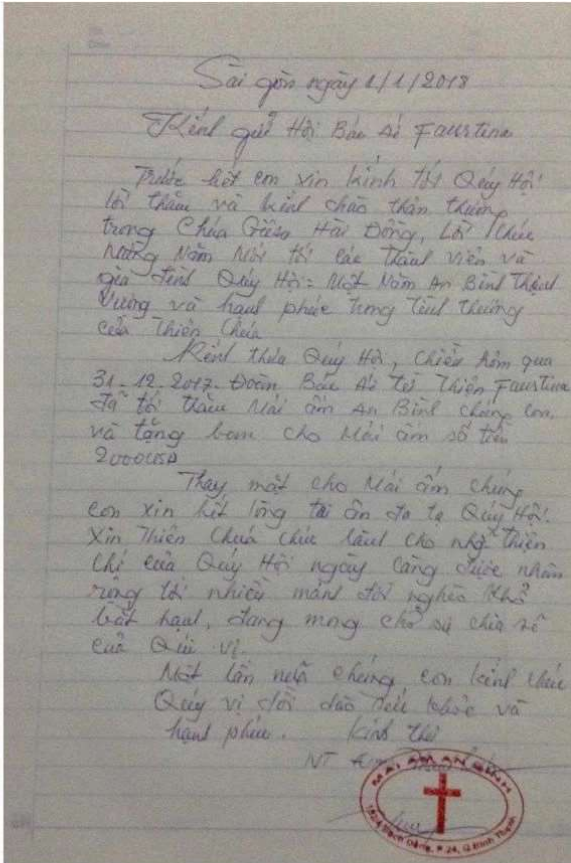 Sài gòn ngày 1/1/2018
Kính gửi Hội Bác Ái Faustina
Trước hết con xin kính tới Quý Hội
lời thăm và kính chào thân thương
trong Chúa Giêsu Hài Đồng, Lời chúc
mừng Năm Mới tới các thành viên và
gia đình Quý Hội: Một Năm An Bình Thịnh
Vượng và hạnh phúc trong tình thương
của Thiên Chúa
Kính thưa Quý Hội, chiều hôm qua
31-12-2017. Đoàn Bác Ái Từ Thiện Faustina
đã tới thăm Mái ấm An Bình chúng con
và tặng ban cho Mái ấm số tiền
2000USD
Thay mặt cho Mái ấm chúng
con xin hết lòng tri ân đa tạ Quý Hội.
Xin Thiên Chúa chúc lành cho những thiện
chí của Quý Hội ngày càng được nhân
rộng tới nhiều mảnh đời nghèo khổ
bất hạnh, đang mong chờ sự chia sẻ
của Quí vị.
Một lần nữa chúng con kính chúc
Quý vị dồi dào sức khỏe và
hạnh phúc. Kính thư
NT
MÁI ẤM AN BÌNH
Bạch Đằng, P.24, Q.Bình Thạnh